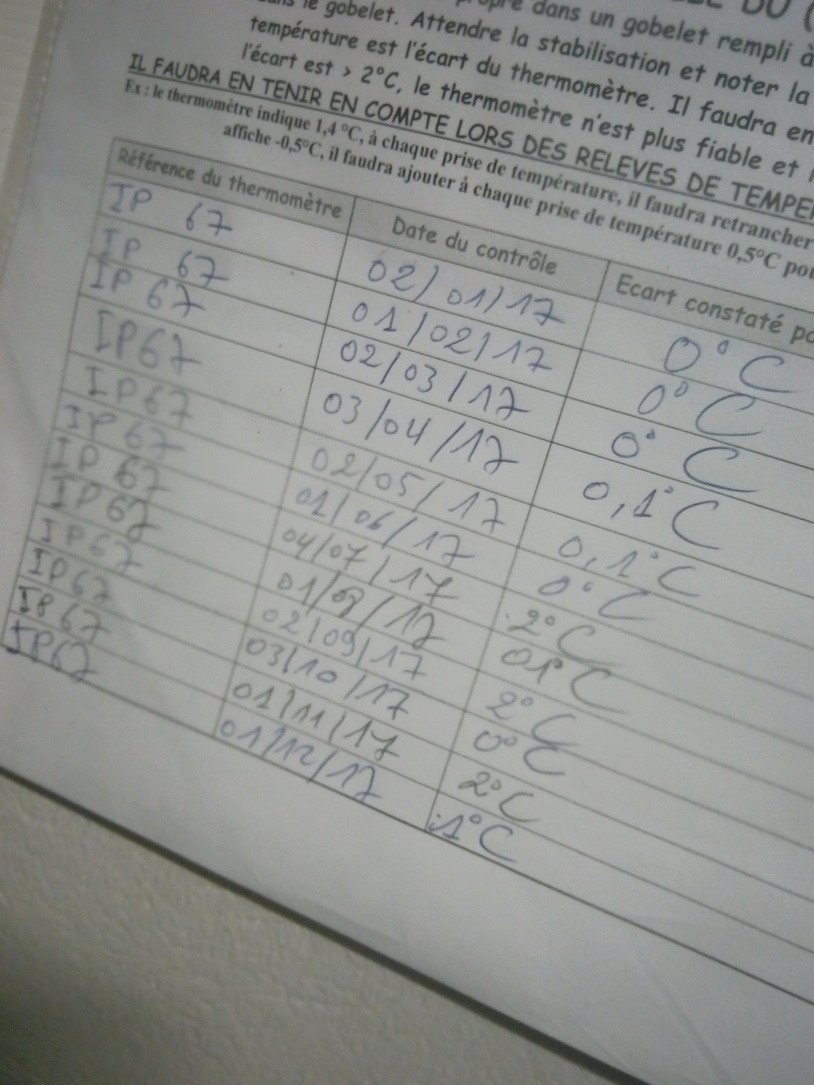 DU (
propre dans un gobelet rempli à
le gobelet. Attendre la stabilisation et noter la
température est l'écart du thermomètre. Il faudra en
l'écart est > 2°C, le thermomètre n'est plus fiable et
IL FAUDRA EN TENIR EN COMPTE LORS DES RELEVES DE TEMPE
Ex : le thermomètre indique 1,4 °C, à chaque prise de température, il faudra retrancher
affiche -0,5°C, il faudra ajouter à chaque prise de température 0,5°C po
Référence du thermomètre Date du contrôle Ecart constaté pa
IP 67 02/01/17 0°C
IP 67 01/02/17 0°C
IP 67 02/03/17 0°C
IP67 03/04/17 0,1°C
IP67 02/05/17 0,1°C
IP 67 01/06/17 0°C
IP 67 04/07/17 2°C
IP 67 01/08/17
IP67 02/09/17 2°C
IP67 03/10/17 0°C
IP67 01/11/17 2°C
IP67 01/12/17 1°C